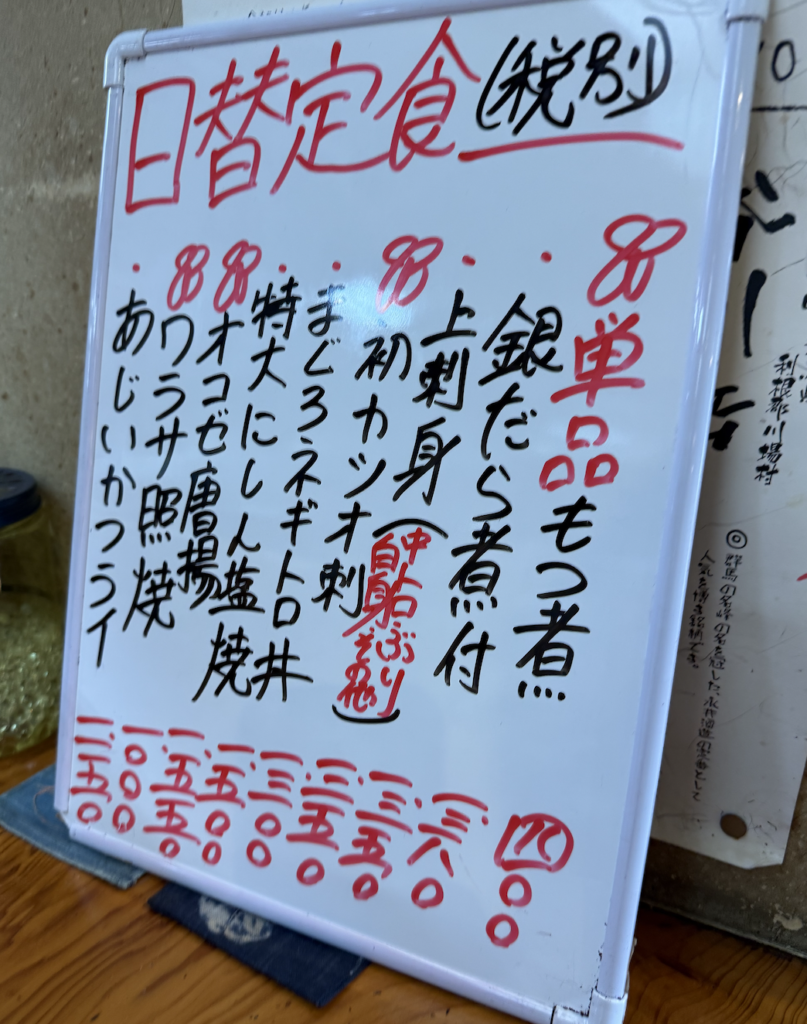 日替定食(税別)
単品もつ煮 九〇〇
・銀だら煮付 一、三八〇
・上刺身(中トロ・ぶり白身その他) 一、三五〇
初カツオ刺 一、三五〇
・まぐろネギトロ丼 一、三〇〇
・特大にしん塩焼 一、五〇〇
オコゼ唐揚 一、五五〇
ワラサ照焼 一、〇〇〇
・あじいかフライ 一、一五〇
利根郡川場村
◎群馬の名峰の名を冠した、永井酒造の定番として
人気を博す銘柄です。